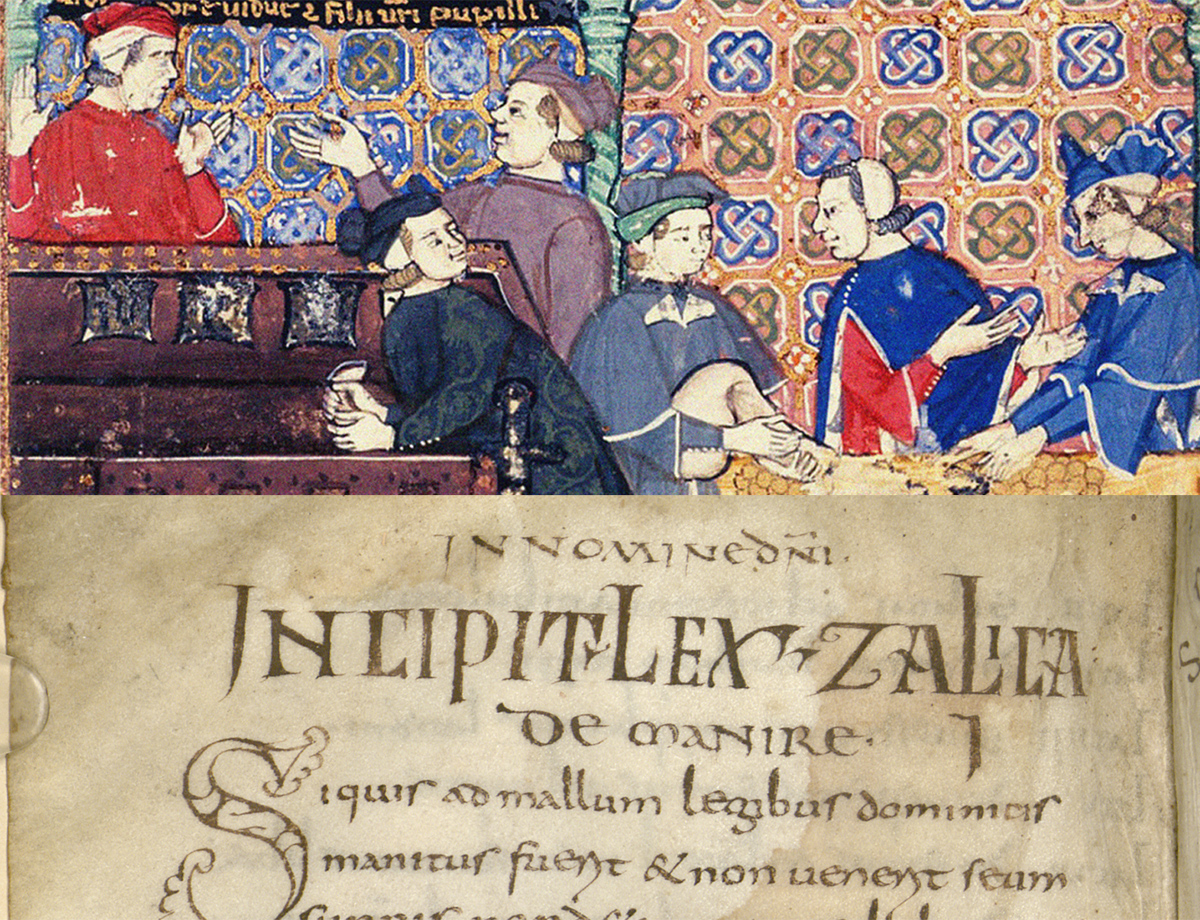 vidue & filii uri pupilli
IN NOMINE DNI.
INCIPIT LEX ZALICA
DE MANIRE. I
Si quis ad mallum legibus dominicis
manitus fuerit & non uenerit seum